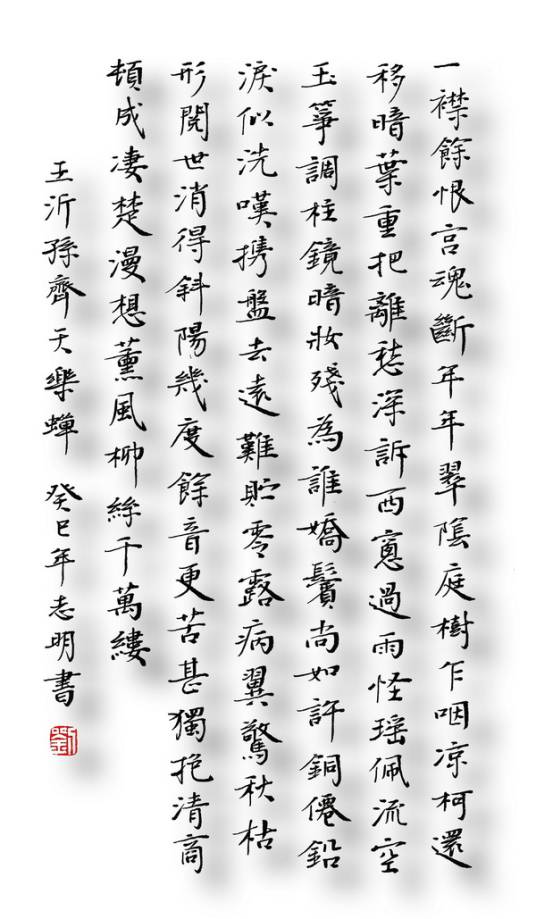 一襟餘恨宮魂斷年年翠陰庭樹乍咽凉柯還
移暗葉重把離愁深訴西窻過雨怪瑤佩流空
玉箏調柱鏡暗妝殘為誰嬌鬢尚如許銅僊鉛
淚似洗嘆携盤去遠難貯零露病翼驚秋枯
形閱世消得斜陽幾度餘音更苦甚獨抱清商
頓成淒楚漫想薰風柳絲千萬縷
王沂孫齊天樂蟬 癸巳年志明書
劉